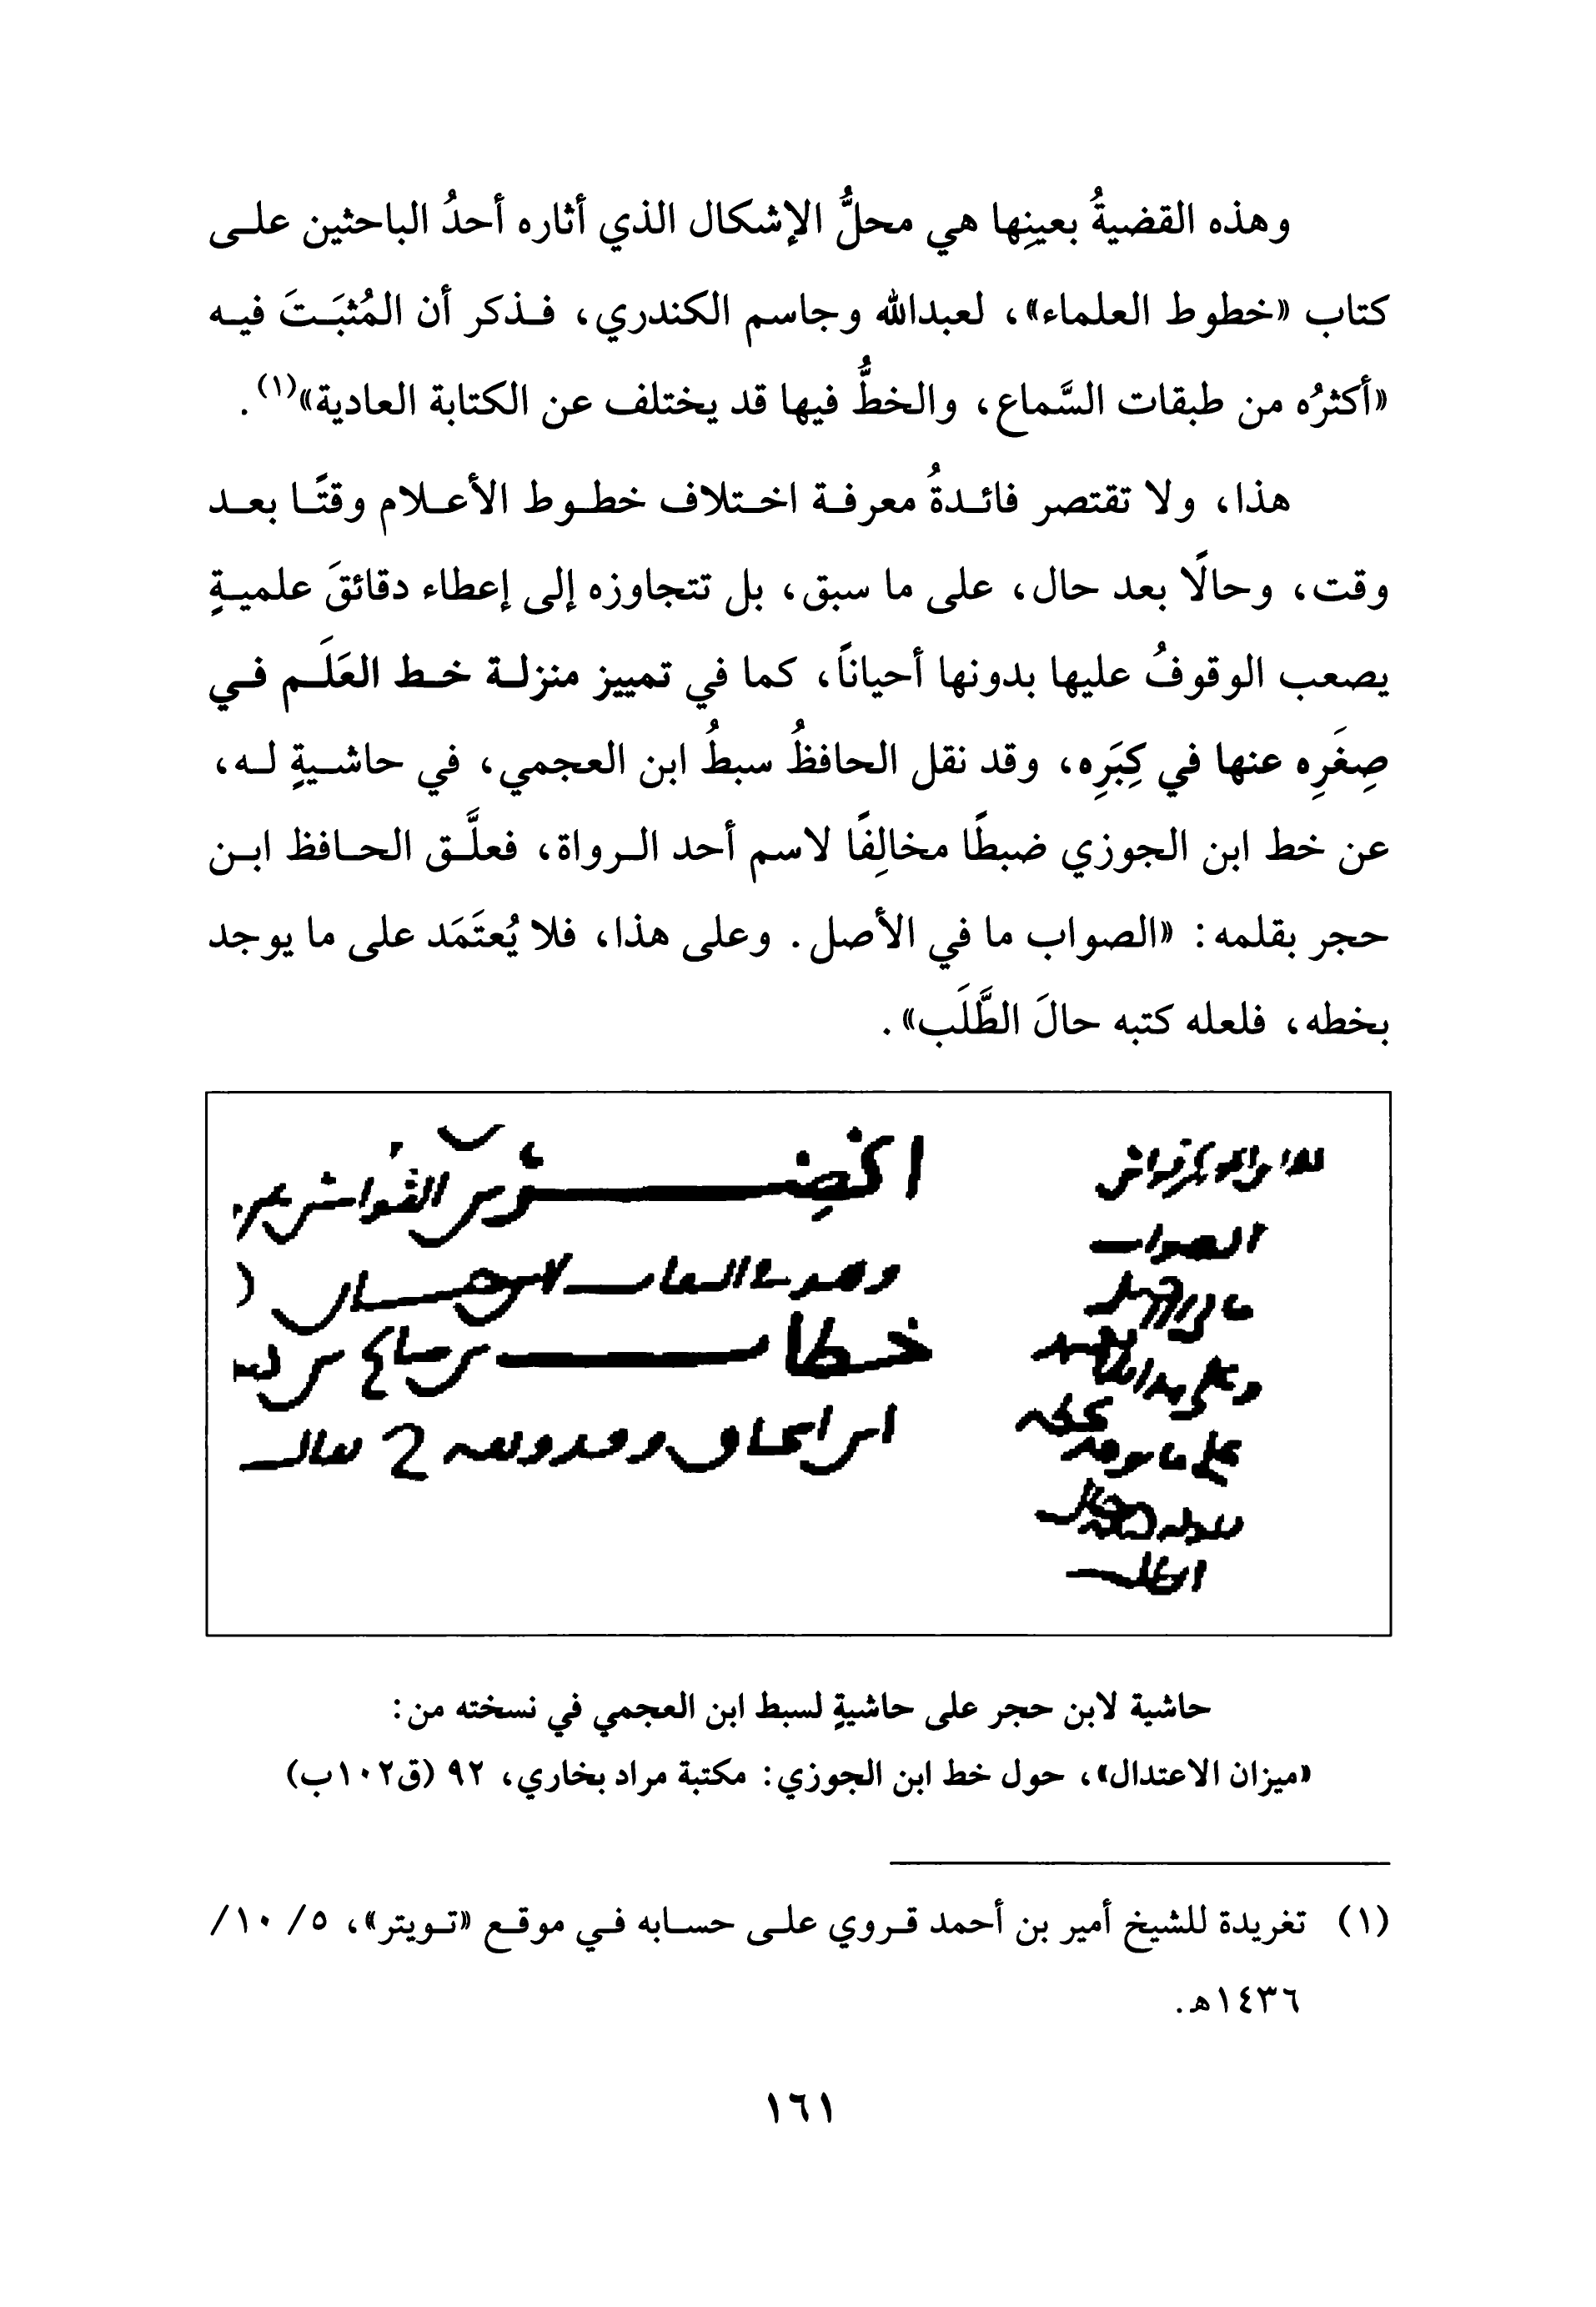 وهذه القضيةُ بعينِها هي محلُّ الإشكال الذي أثاره أحدُ الباحثين على
كتاب «خطوط العلماء»، لعبدالله وجاسم الكندري، فذكر أن المُثبَتَ فيه
«أكثرُه من طبقات السَّماع، والخطُّ فيها قد يختلف عن الكتابة العادية»(١).
هذا، ولا تقتصر فائدةُ معرفة اختلاف خطوط الأعلام وقتًا بعد
وقت، وحالًا بعد حال، على ما سبق، بل تتجاوزه إلى إعطاء دقائقَ علميةٍ
يصعب الوقوفُ عليها بدونها أحيانًا، كما في تمييز منزلة خط العَلَم في
صِغَرِه عنها في كِبَرِه، وقد نقل الحافظُ سبطُ ابن العجمي، في حاشيةٍ له،
عن خط ابن الجوزي ضبطًا مخالِفًا لاسم أحد الرواة، فعلَّق الحافظ ابن
حجر بقلمه: «الصواب ما في الأصل. وعلى هذا، فلا يُعتَمَد على ما يوجد
بخطه، فلعله كتبه حالَ الطَّلَب».
الصواب
ما في الأصل
وعلى هذا فلا يعتمد
على ما يوجد بخطه
فلعله كتبه حال
الطلب
حاشية لابن حجر على حاشيةٍ لسبط ابن العجمي في نسخته من:
«ميزان الاعتدال»، حول خط ابن الجوزي: مكتبة مراد بخاري، ٩٢ (ق١٠٢ب)
(١) تغريدة للشيخ أمير بن أحمد قروي على حسابه في موقع «تويتر»، ٥/ ١٠/
١٤٣٦هـ.
١٦١